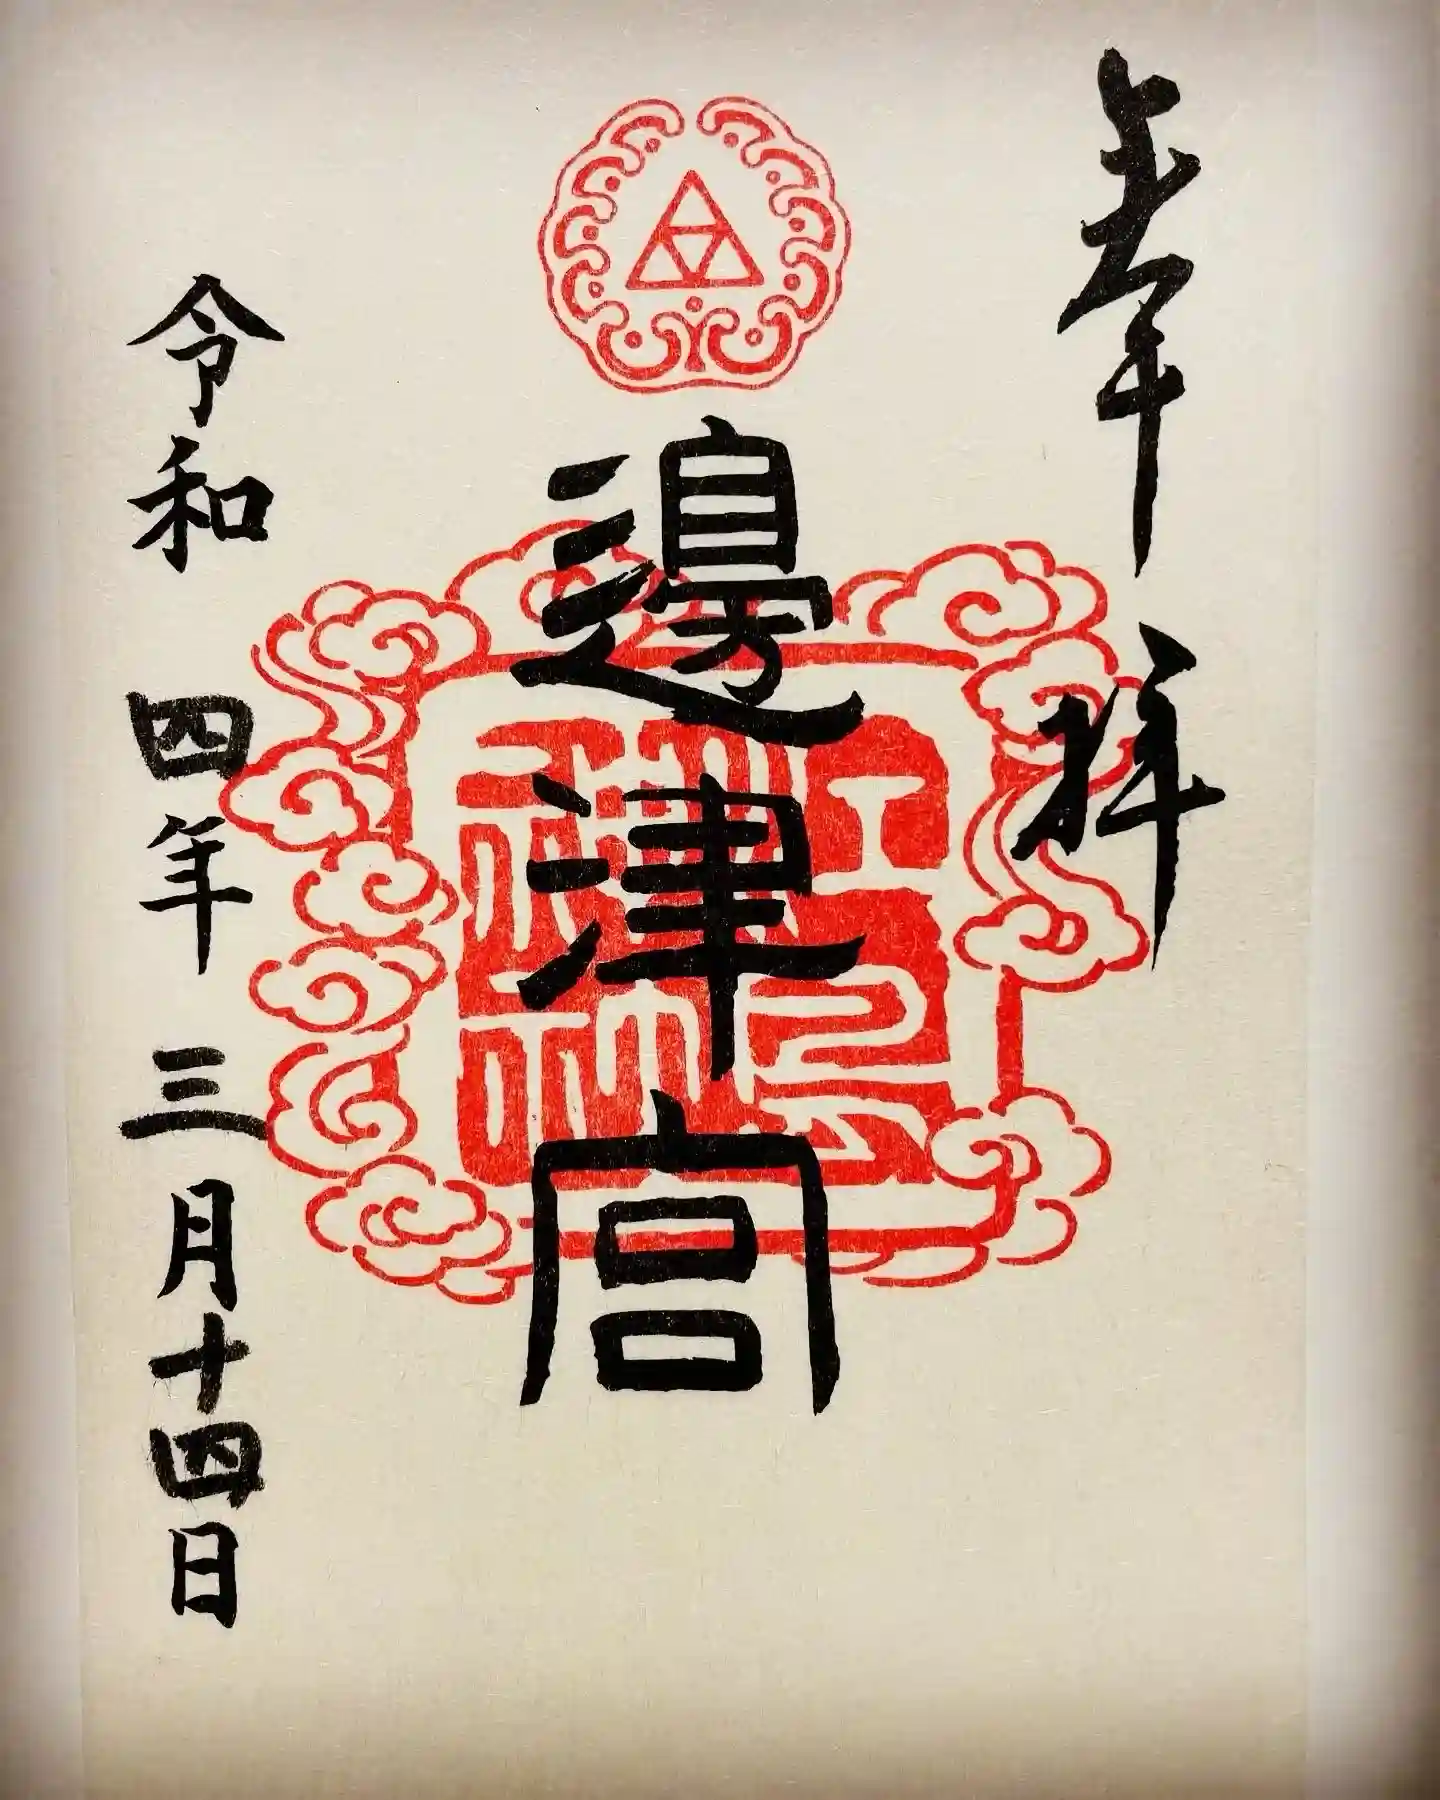 奉拝
邊津宮
令和四年三月十四日